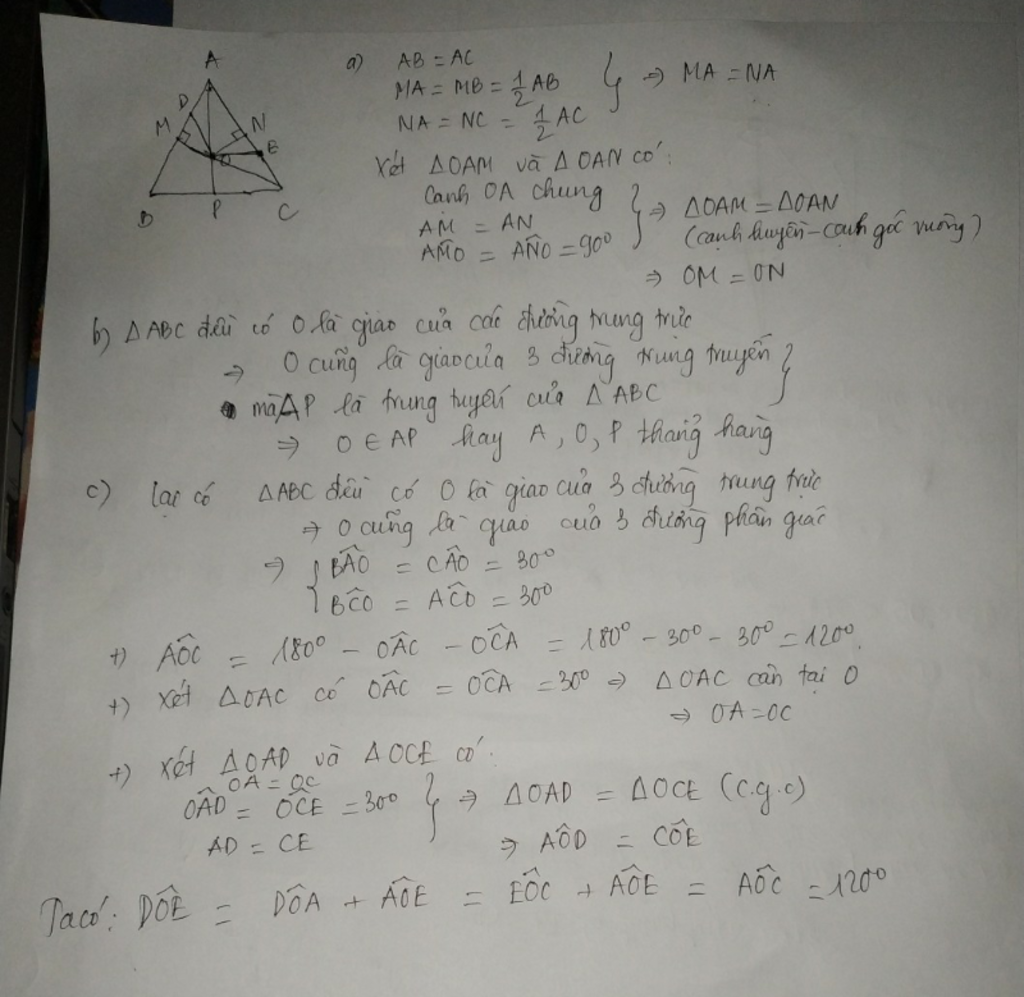 A
D
M
N
E
O
B
P
C
a) AB = AC
MA = MB = 1/2 AB
NA = NC = 1/2 AC
} ⇒ MA = NA
Xét ΔOAM và ΔOAN có:
Cạnh OA chung
AM = AN
AM̂O = AN̂O = 90°
} ⇒ ΔOAM = ΔOAN
(cạnh huyền - cạnh góc vuông)
⇒ OM = ON
b) ΔABC đều có O là giao của các đường trung trực
⇒ O cũng là giao của 3 đường trung truyến
mà AP là trung tuyến của ΔABC }
⇒ O ∈ AP hay A, O, P thẳng hàng
c) lại có ΔABC đều có O là giao của 3 đường trung trực
⇒ O cũng là giao của 3 đường phân giác
⇒ { BÂO = CÂO = 30°
BĈO = AĈO = 30°
+) AÔC = 180° - OÂC - OĈA = 180° - 30° - 30° = 120°.
+) Xét ΔOAC có OÂC = OĈA = 30° ⇒ ΔOAC cân tại O
⇒ OA = OC
+) Xét ΔOAD và ΔOCE có:
OA = OC
OÂD = OĈE = 30°
AD = CE
} ⇒ ΔOAD = ΔOCE (c.g.c)
⇒ AÔD = CÔE
Ta có: DÔE = DÔA + AÔE = EÔC + AÔE = AÔC = 120°